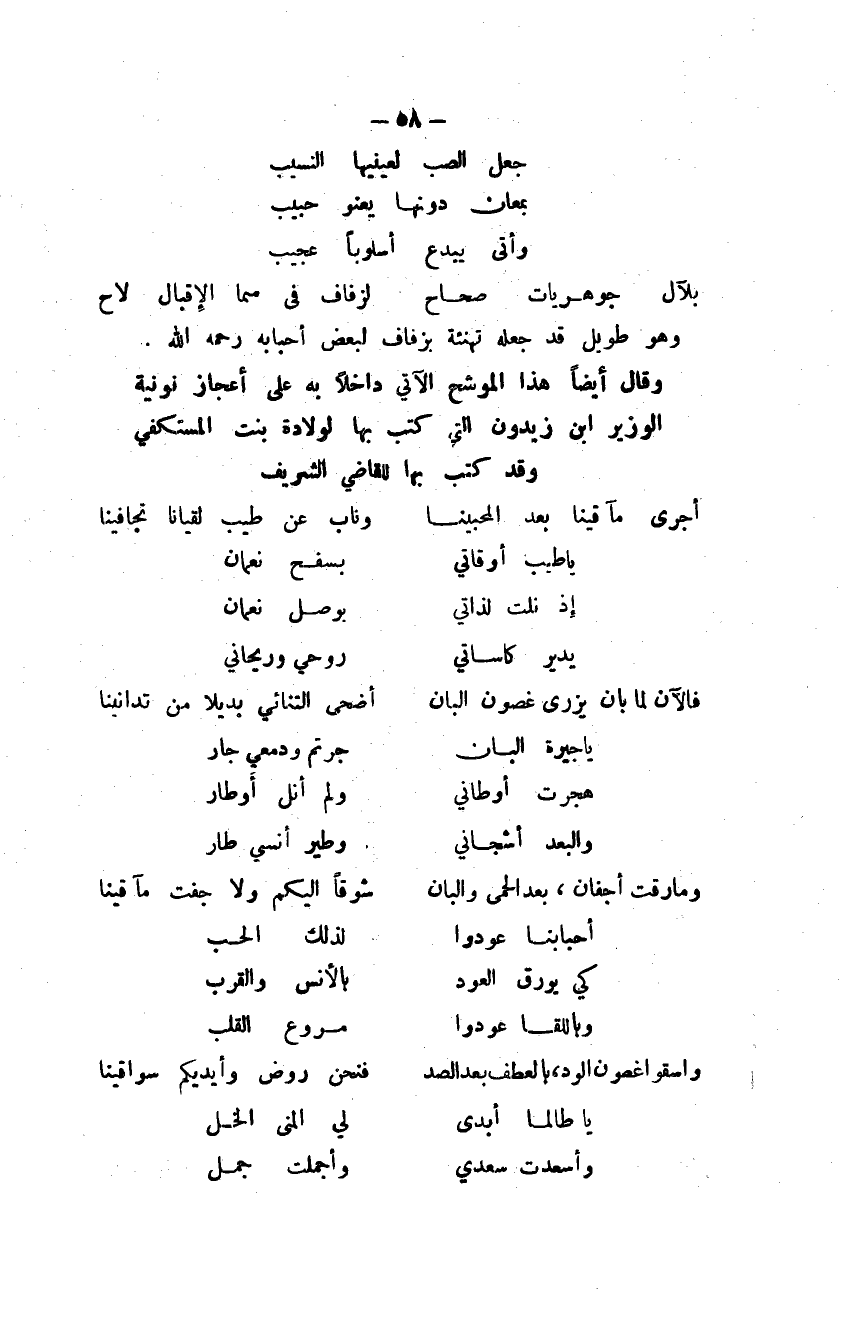 — ٥٨ —
جعل الصب لعينيها النسيب
بمعان دونها يعنو حبيب
وأتى يبدع أسلوباً عجيب
بلآل جوهريات صحاح لزفاف فى سما الإقبال لاح
وهو طويل قد جعله تهنئة بزفاف لبعض أحبابه رحمه الله .
وقال أيضاً هذا الموشح الآتي داخلاً به على أعجاز نونية
الوزير ابن زيدون التي كتب بها لولادة بنت المستكفي
وقد كتب بها للقاضي الشريف
أجرى مآقينا بعد المحبينا وناب عن طيب لقيانا تجافينا
ياطيب أوقاتي بسفح نعمان
إذ نلت لذاتي بوصل نعمان
يدير كاساتي روحي وريحاني
فالآن لما بان يزرى غصون البان أضحى التنائي بديلا من تدانينا
ياجيرة البان جرتم ودمعي جار
هجرت أوطاني ولم أنل أوطار
والبعد أشجاني وطير أنسي طار
ومارقت أجفان ، بعد الحمى والبان شوقاً اليكم ولا جفت مآقينا
أحبابنا عودوا لذلك الحب
كي يورق العود بالأنس والقرب
وباللقا عودوا مروع القلب
واسقوا غصون الود، بالعطف بعد الصد فنحن روض وأيديكم سواقينا
يا طالما أبدى لي المنى الخل
وأسعدت سعدي وأجملت جمل